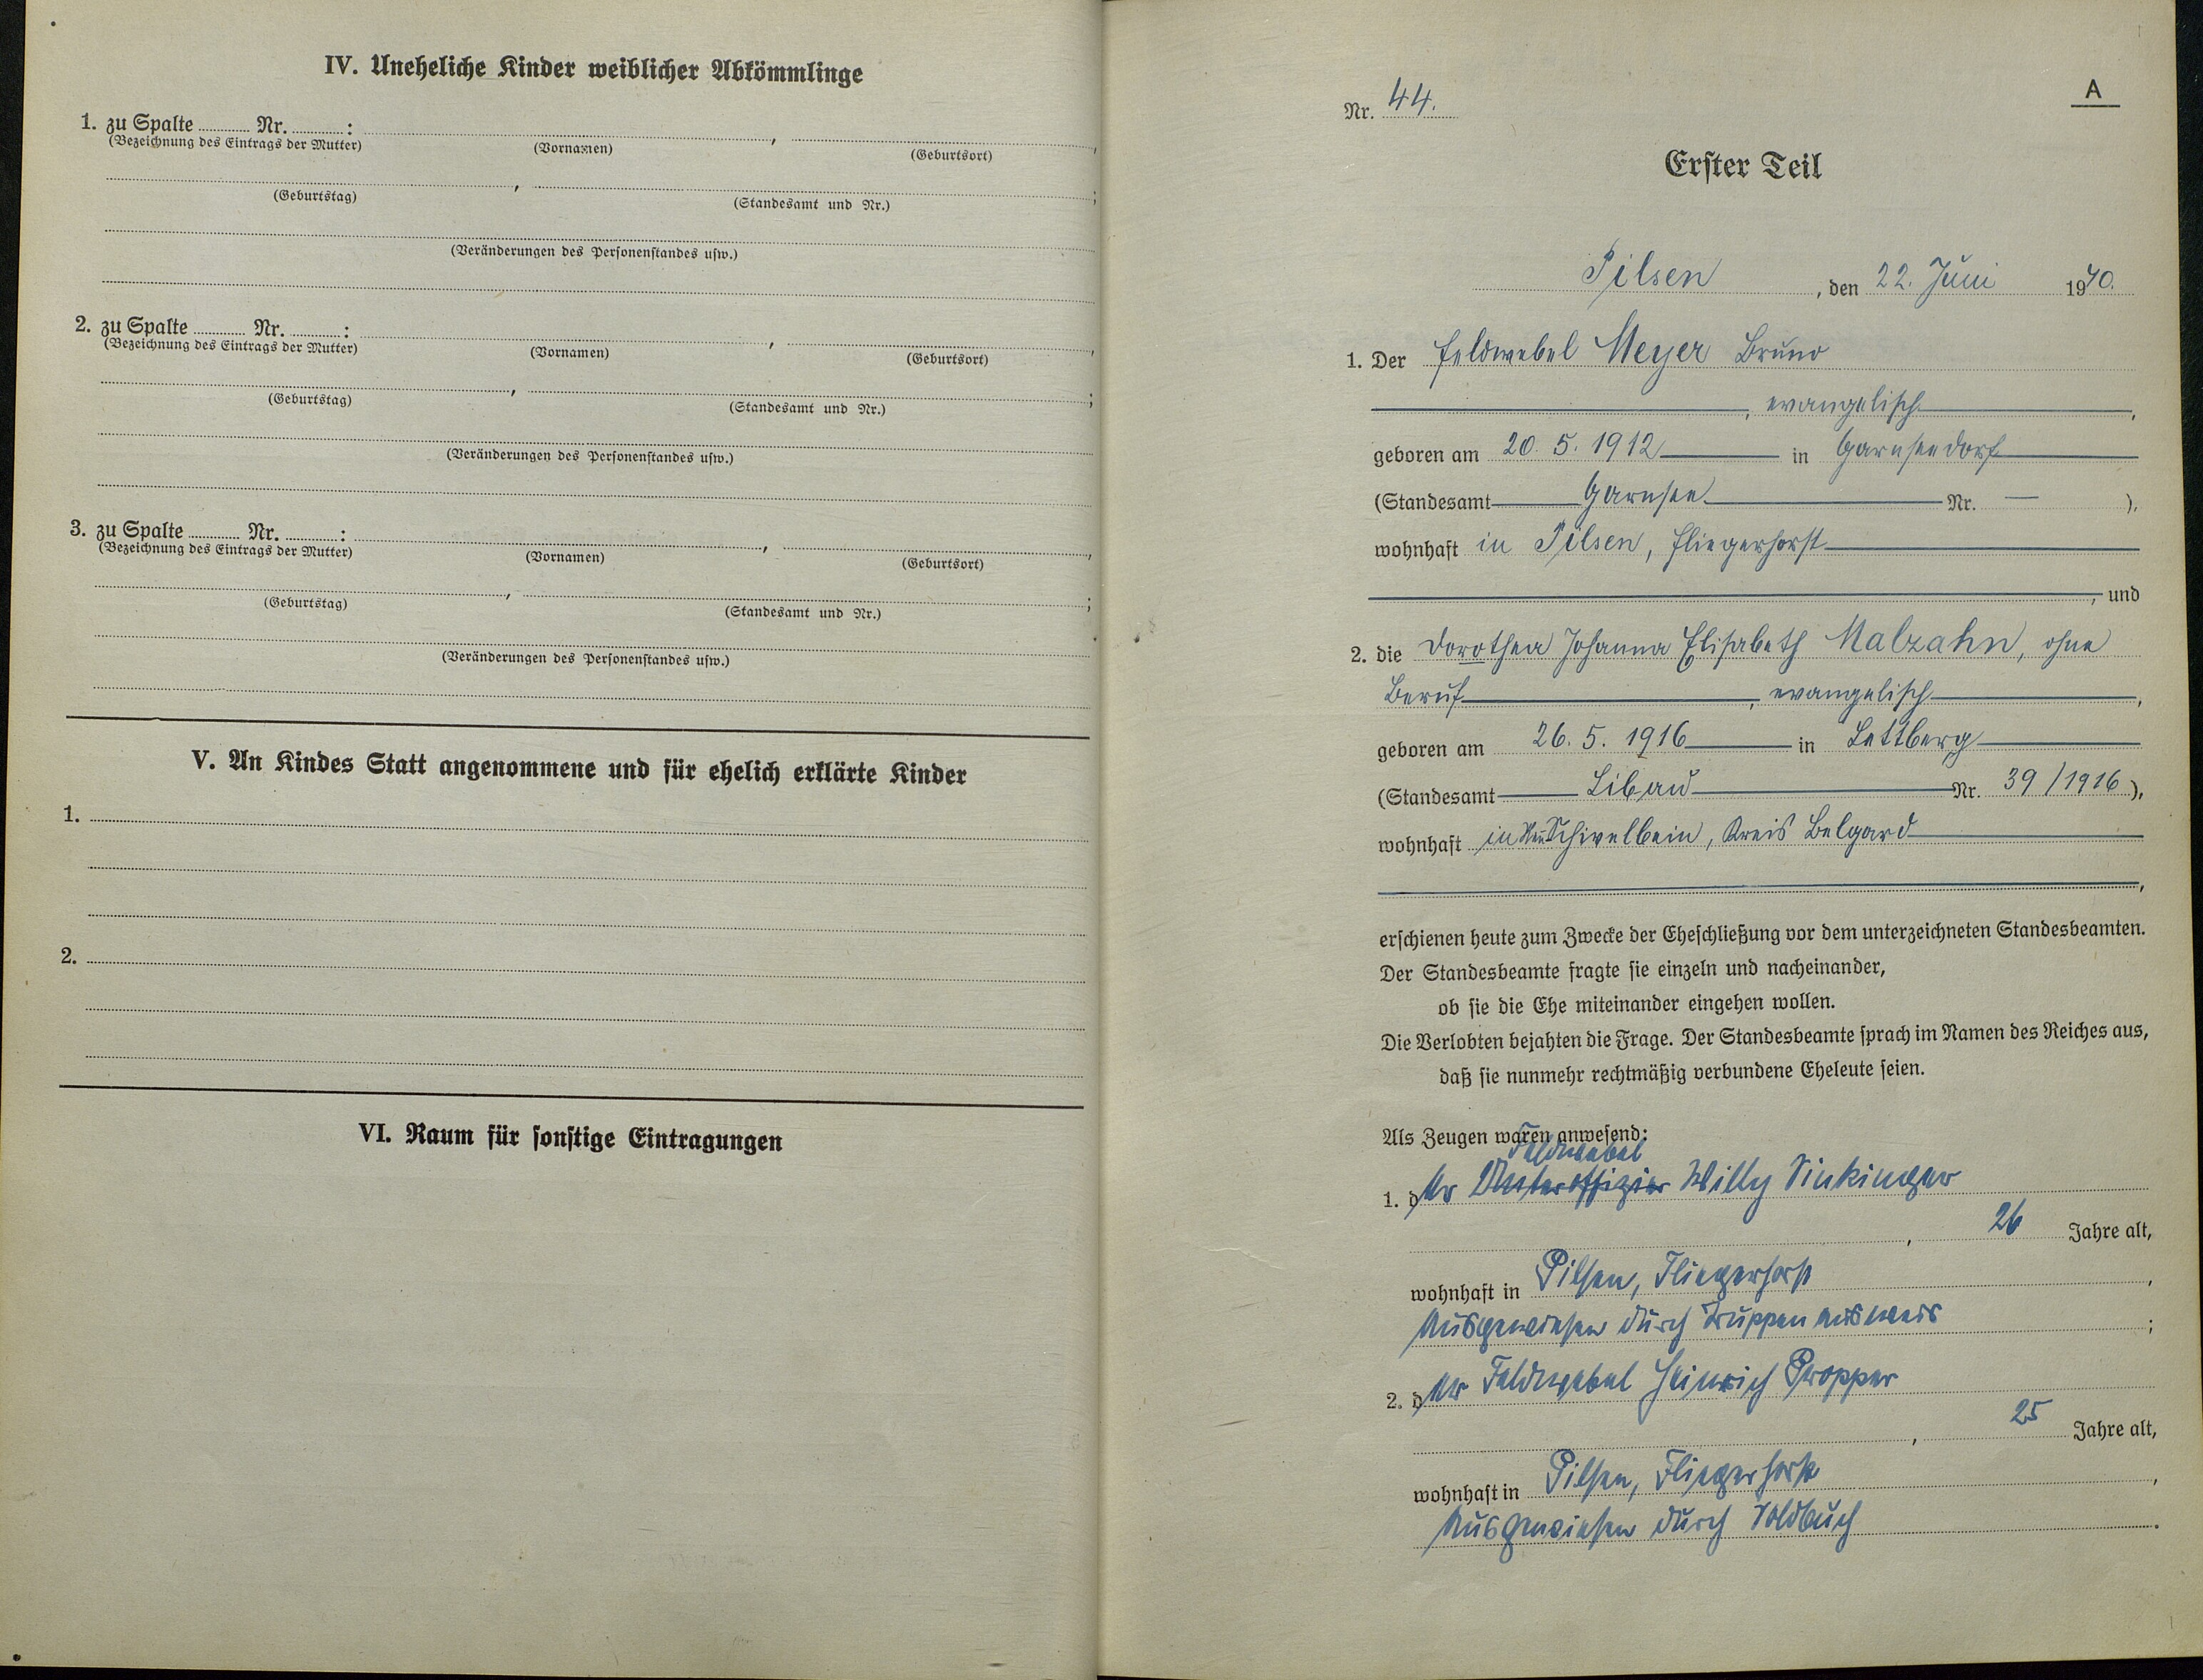 IV. Uneheliche Kinder weiblicher Abkömmlinge
1. zu Spalte Nr. : , ,
(Bezeichnung des Eintrags der Mutter) (Vornamen) (Geburtsort)
, ;
(Geburtstag) (Standesamt und Nr.)
(Veränderungen des Personenstandes usw.)
2. zu Spalte Nr. : , ,
(Bezeichnung des Eintrags der Mutter) (Vornamen) (Geburtsort)
, ;
(Geburtstag) (Standesamt und Nr.)
(Veränderungen des Personenstandes usw.)
3. zu Spalte Nr. : , ,
(Bezeichnung des Eintrags der Mutter) (Vornamen) (Geburtsort)
, ;
(Geburtstag) (Standesamt und Nr.)
(Veränderungen des Personenstandes usw.)
V. An Kindes Statt angenommene und für ehelich erklärte Kinder
1.
2.
VI. Raum für sonstige Eintragungen
A
Nr. 44.
Erster Teil
Pilsen, den 22. Juni 1940.
1. Der Feldwebel Meyer Bruno
, evangelisch,
geboren am 20. 5. 1912 in Garnseedorf
(Standesamt Garnsee Nr. — ),
wohnhaft in Pilsen, Fliegerhorst
, und
2. die Dorothea Johanna Elisabeth Malzahn, ohne
Beruf, evangelisch,
geboren am 26. 5. 1916 in Lettberg
(Standesamt Libau Nr. 39/1916),
wohnhaft in Schivelbein, Kreis Belgard
,
erschienen heute zum Zwecke der Eheschließung vor dem unterzeichneten Standesbeamten.
Der Standesbeamte fragte sie einzeln und nacheinander,
ob sie die Ehe miteinander eingehen wollen.
Die Verlobten bejahten die Frage. Der Standesbeamte sprach im Namen des Reiches aus,
daß sie nunmehr rechtmäßig verbundene Eheleute seien.
Als Zeugen waren anwesend:
Feldwebel
1. der Unteroffizier Willy
, 26 Jahre alt,
wohnhaft in Pilsen, Fliegerhorst,
Ausgewiesen durch Truppenausweis;
2. der Feldwebel Heinrich Propper
, 25 Jahre alt,
wohnhaft in Pilsen, Fliegerhorst,
Ausgewiesen durch Soldbuch.